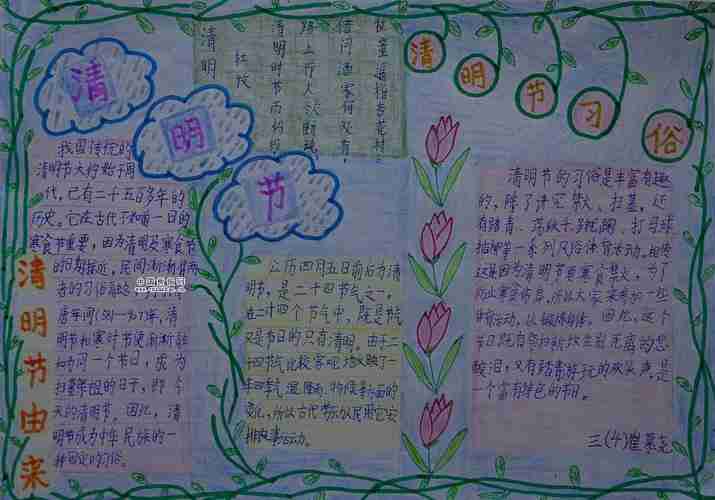 清
明
节
清明
杜牧
清明时节雨纷纷
路上行人欲断魂
借问酒家何处有
牧童遥指杏花村
清明节习俗
清明节由来
我国传统的
清明节大约始于周
代,已有二千五百多年的
历史。
寒食节重要,因为清明及寒食节
的日期接近,民间渐渐将两
者的习俗
唐年间
明节和寒食节便渐渐融
和为同一个节日,成为
扫墓祭祖的日子,即今
天的清明节。因此,清
明节成为中华民族的一
种固定的习俗。
公历四月五日前后为清
明节,是二十四节气之一。
在二十四个节气中,既是节气
又是节日的只有清明。由于二
十四节气比较客观地反映了一
年四季气温、降雨、物候等方面的
变化,所以古代劳动人民用它安
排农事活动。
清明节的习俗是丰富有趣
的,除了讲究禁火、扫墓,还
有踏青、荡秋千、蹴鞠、打马球、
插柳等一系列风俗体育活动。相传
这是因为清明节要寒食禁火,为了
防止寒食
体育活动,以锻炼身体。因此,这个
酸泪,又有踏青游玩的欢笑声,是
一个富有特色的节日。
三(4)